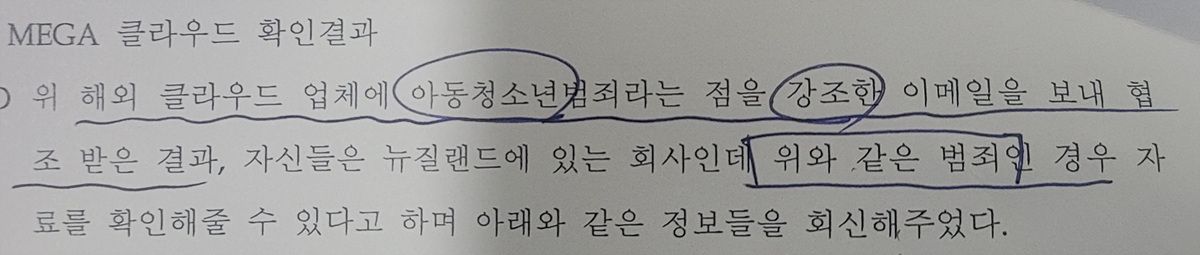 MEGA 클라우드 확인결과
위 해외 클라우드 업체에 아동청소년범죄라는 점을 강조한 이메일을 보내 협
조 받은 결과, 자신들은 뉴질랜드에 있는 회사인데 위와 같은 범죄인 경우 자
료를 확인해줄 수 있다고 하며 아래와 같은 정보들을 회신해주었다.